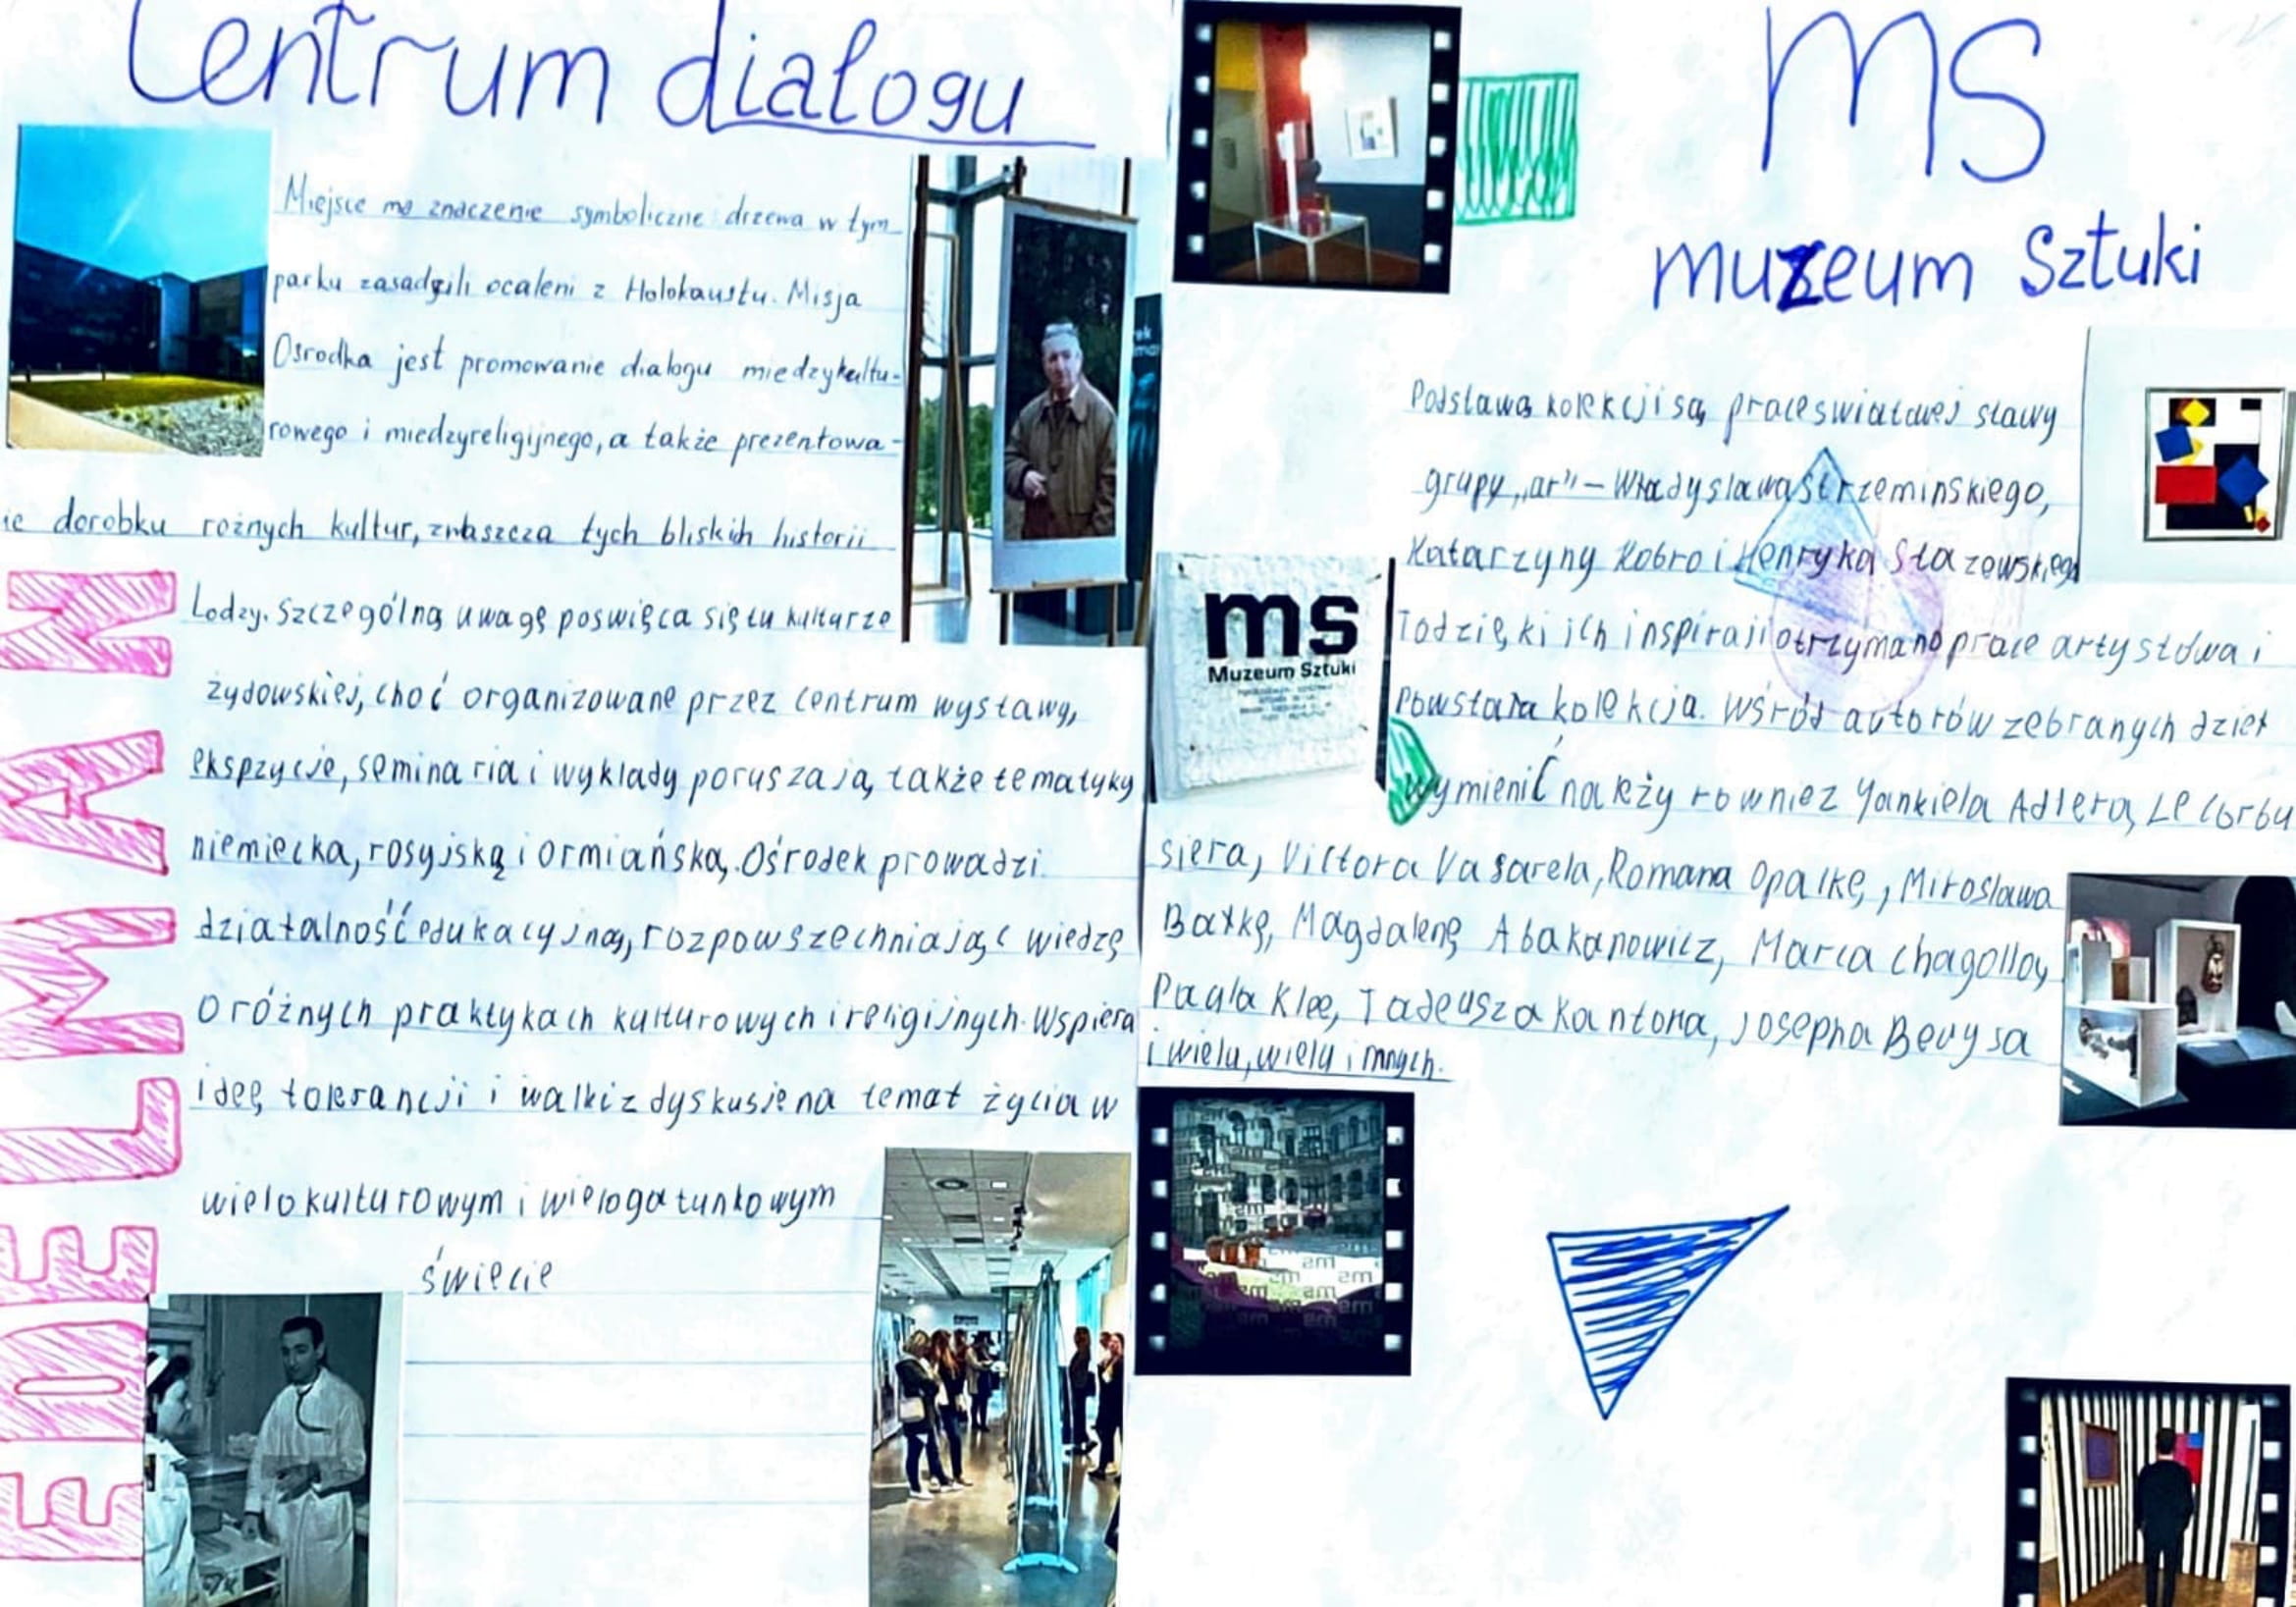 Centrum dialogu
Miejsce ma znaczenie symboliczne drzewa w tym
parku zasadzili ocaleni z Holokaustu. Misja
Osrodka jest promowanie dialogu miedzykultu-
rowego i miedzyreligijnego, a także prezentowa-
ie dorobku rożnych kultur, zwłaszcza tych bliskich historii
Lodzy. Szczególną uwagę poswięca się tu kulturze
żydowskiej, choć organizowane przez centrum wystawy,
ekspzycje, seminaria i wyklady poruszają także tematyky
niemiecka, rosyjską i ormiańską. Ośrodek prowadzi
działalność edukacyjną, rozpowszechniając wiedzę
o różnych praktykach kulturowych i religijnych. Wspiera
ideę tolerancji i walki z dyskusje na temat życia w
wielokulturowym i wielogatunkowym
świecie
EDELMAN
ms
muzeum Sztuki
Podstawą kolekcji są prace swiatowej sławy
grupy „ar" – Władysława Strzeminskiego,
Katarzyny Kobro i Henryka Stazewskiego
To dzięki ich inspiraji otrzymano prace artystów a i
powstała kolekcja. Wśród autorów zebranych dzieł
wymienić należy rowniez Yankiela Adlera, Le Corbu
siera, Victora Vasarela, Romana Opałkę, Mirosława
Bałkę, Magdalenę Abakanowicz, Marca
Paula Klee, Tadeusza Kantora, Josepha Beuysa
i wielu, wielu innych.
ms
Muzeum Sztuki